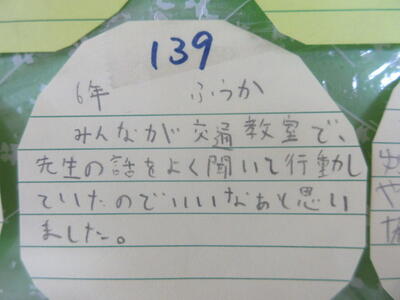 139
6年 ふうか
みんなが交通教室で、
先生の話をよく聞いて行動し
ていたのでいいなあと思い
ました。
や